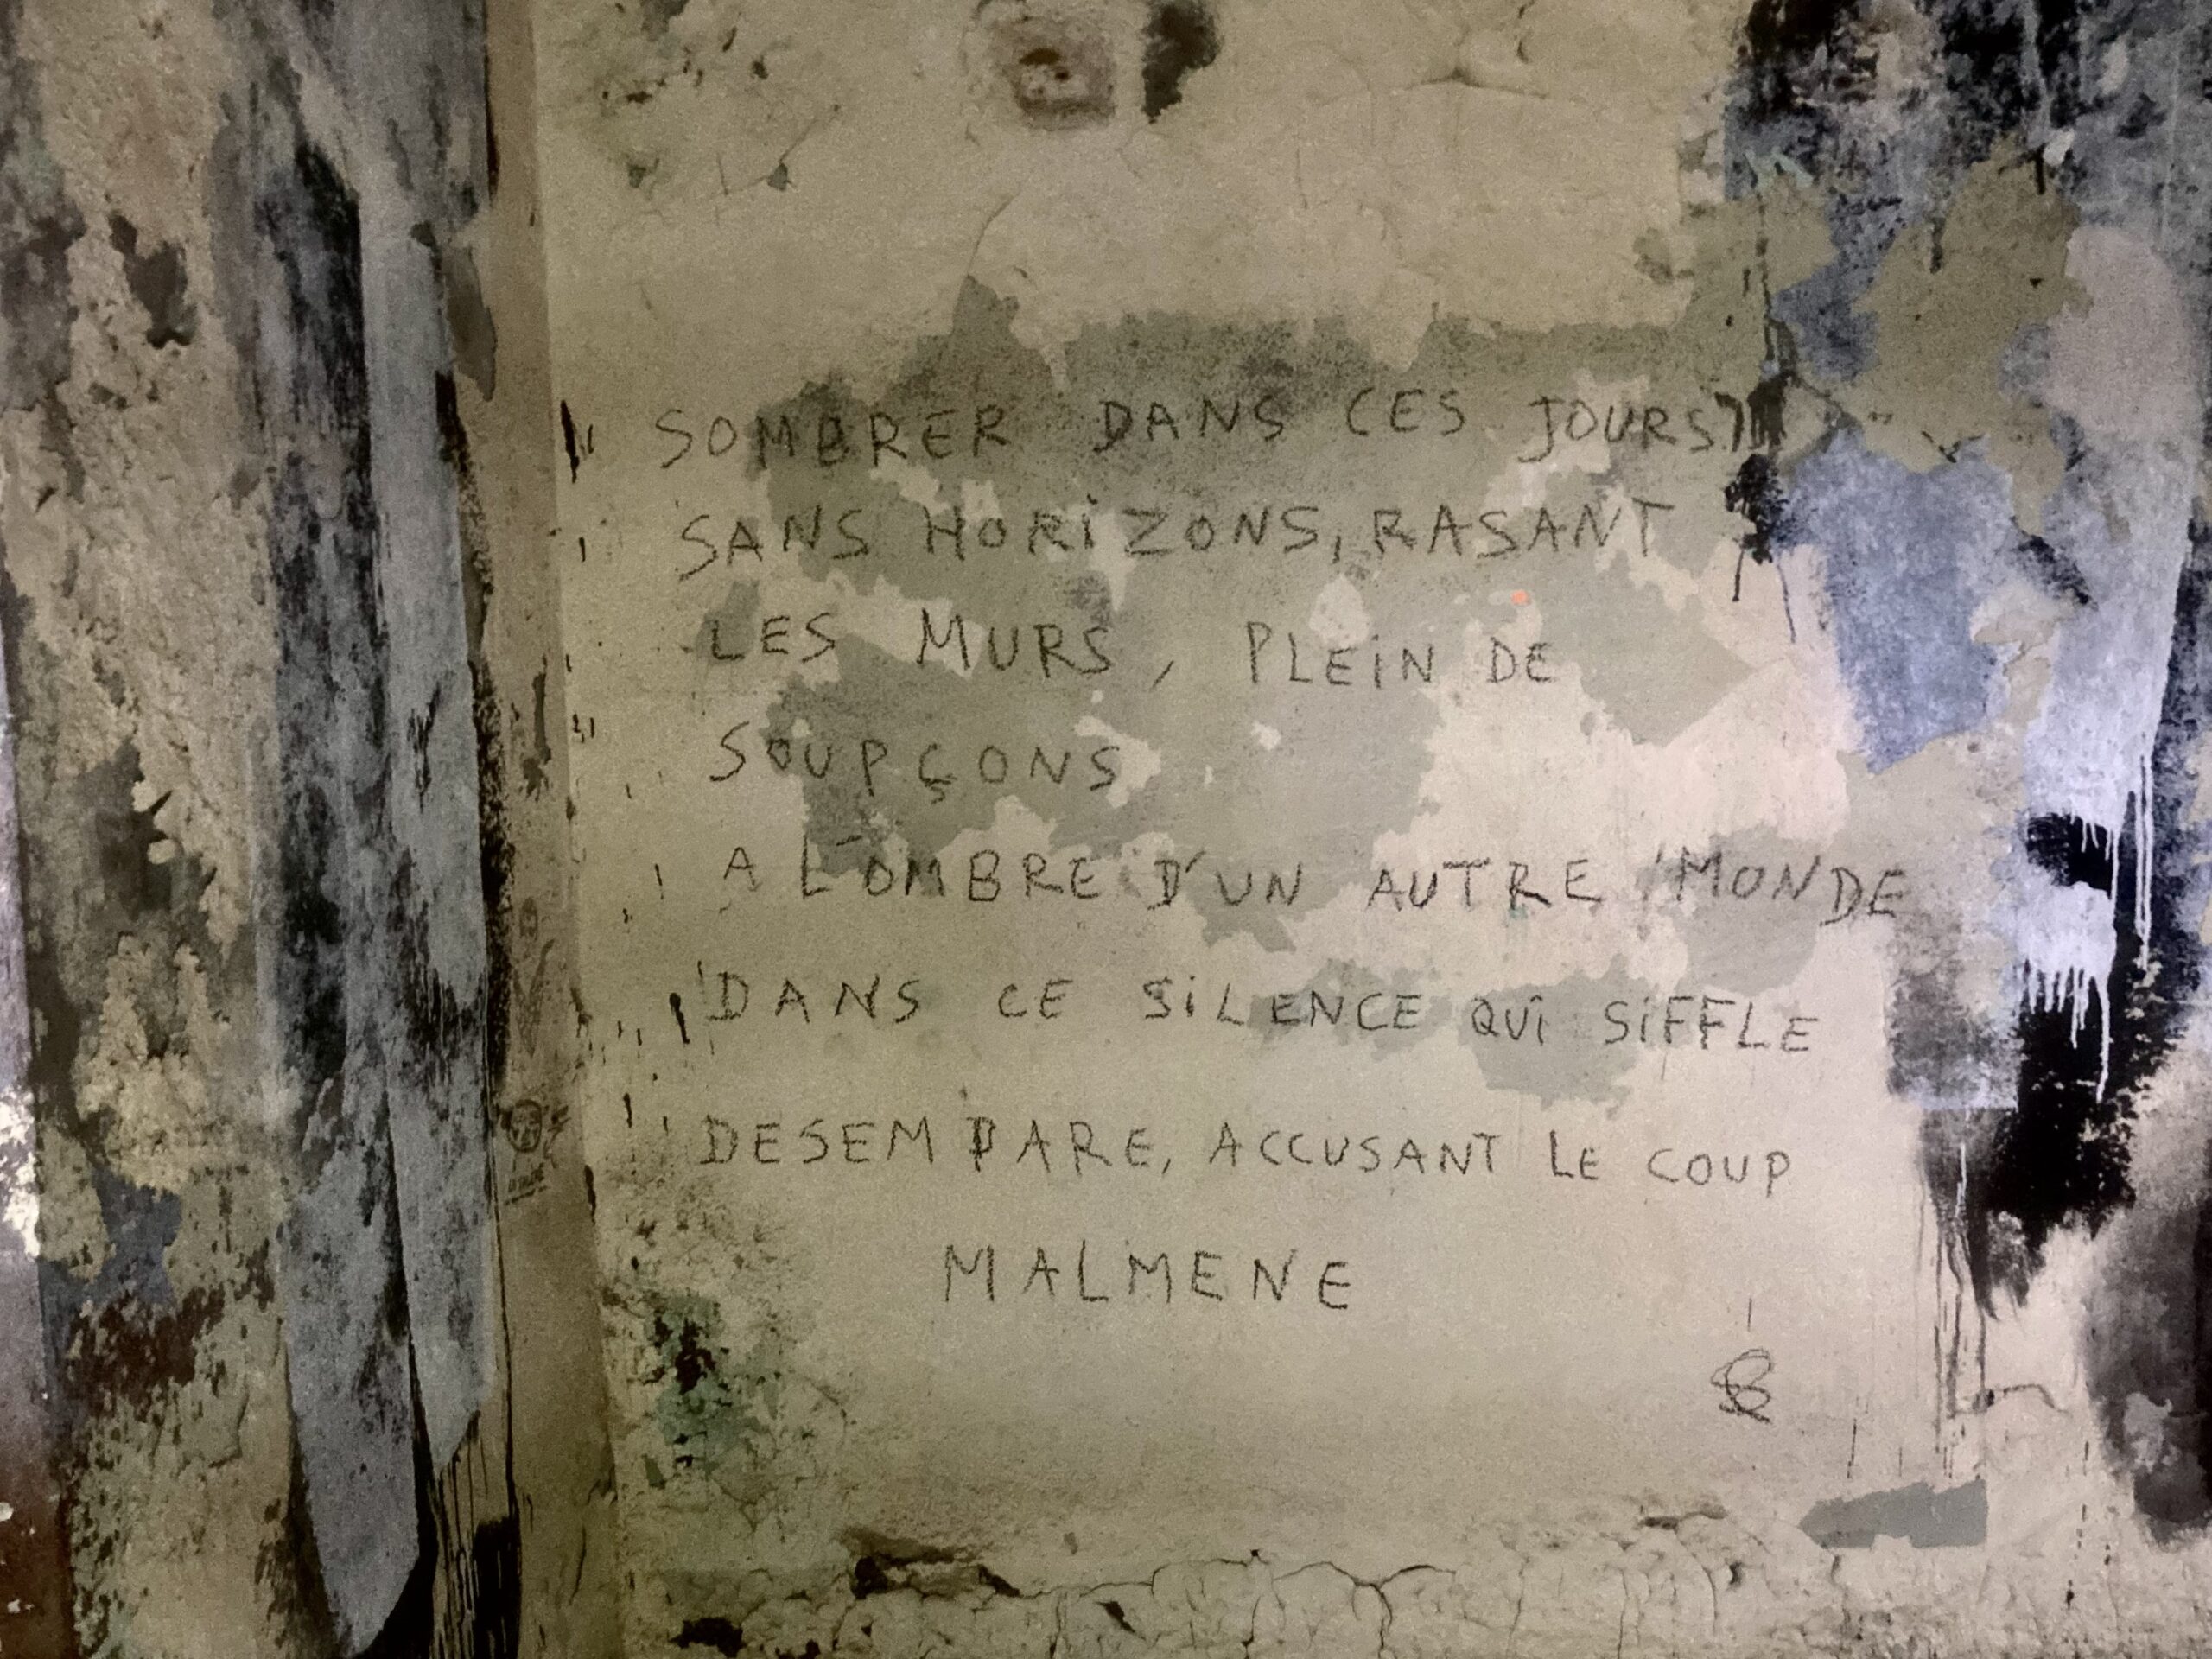 SOMBRER DANS CES JOURS
SANS HORiZONS, RASANT
LES MURS, PLEiN DE
SOUPÇONS
A L'OMBRE D'UN AUTRE MONDE
DANS CE SiLENCE QUi SiFFLE
DESEMPARE, ACCUSANT LE COUP
MALMENE